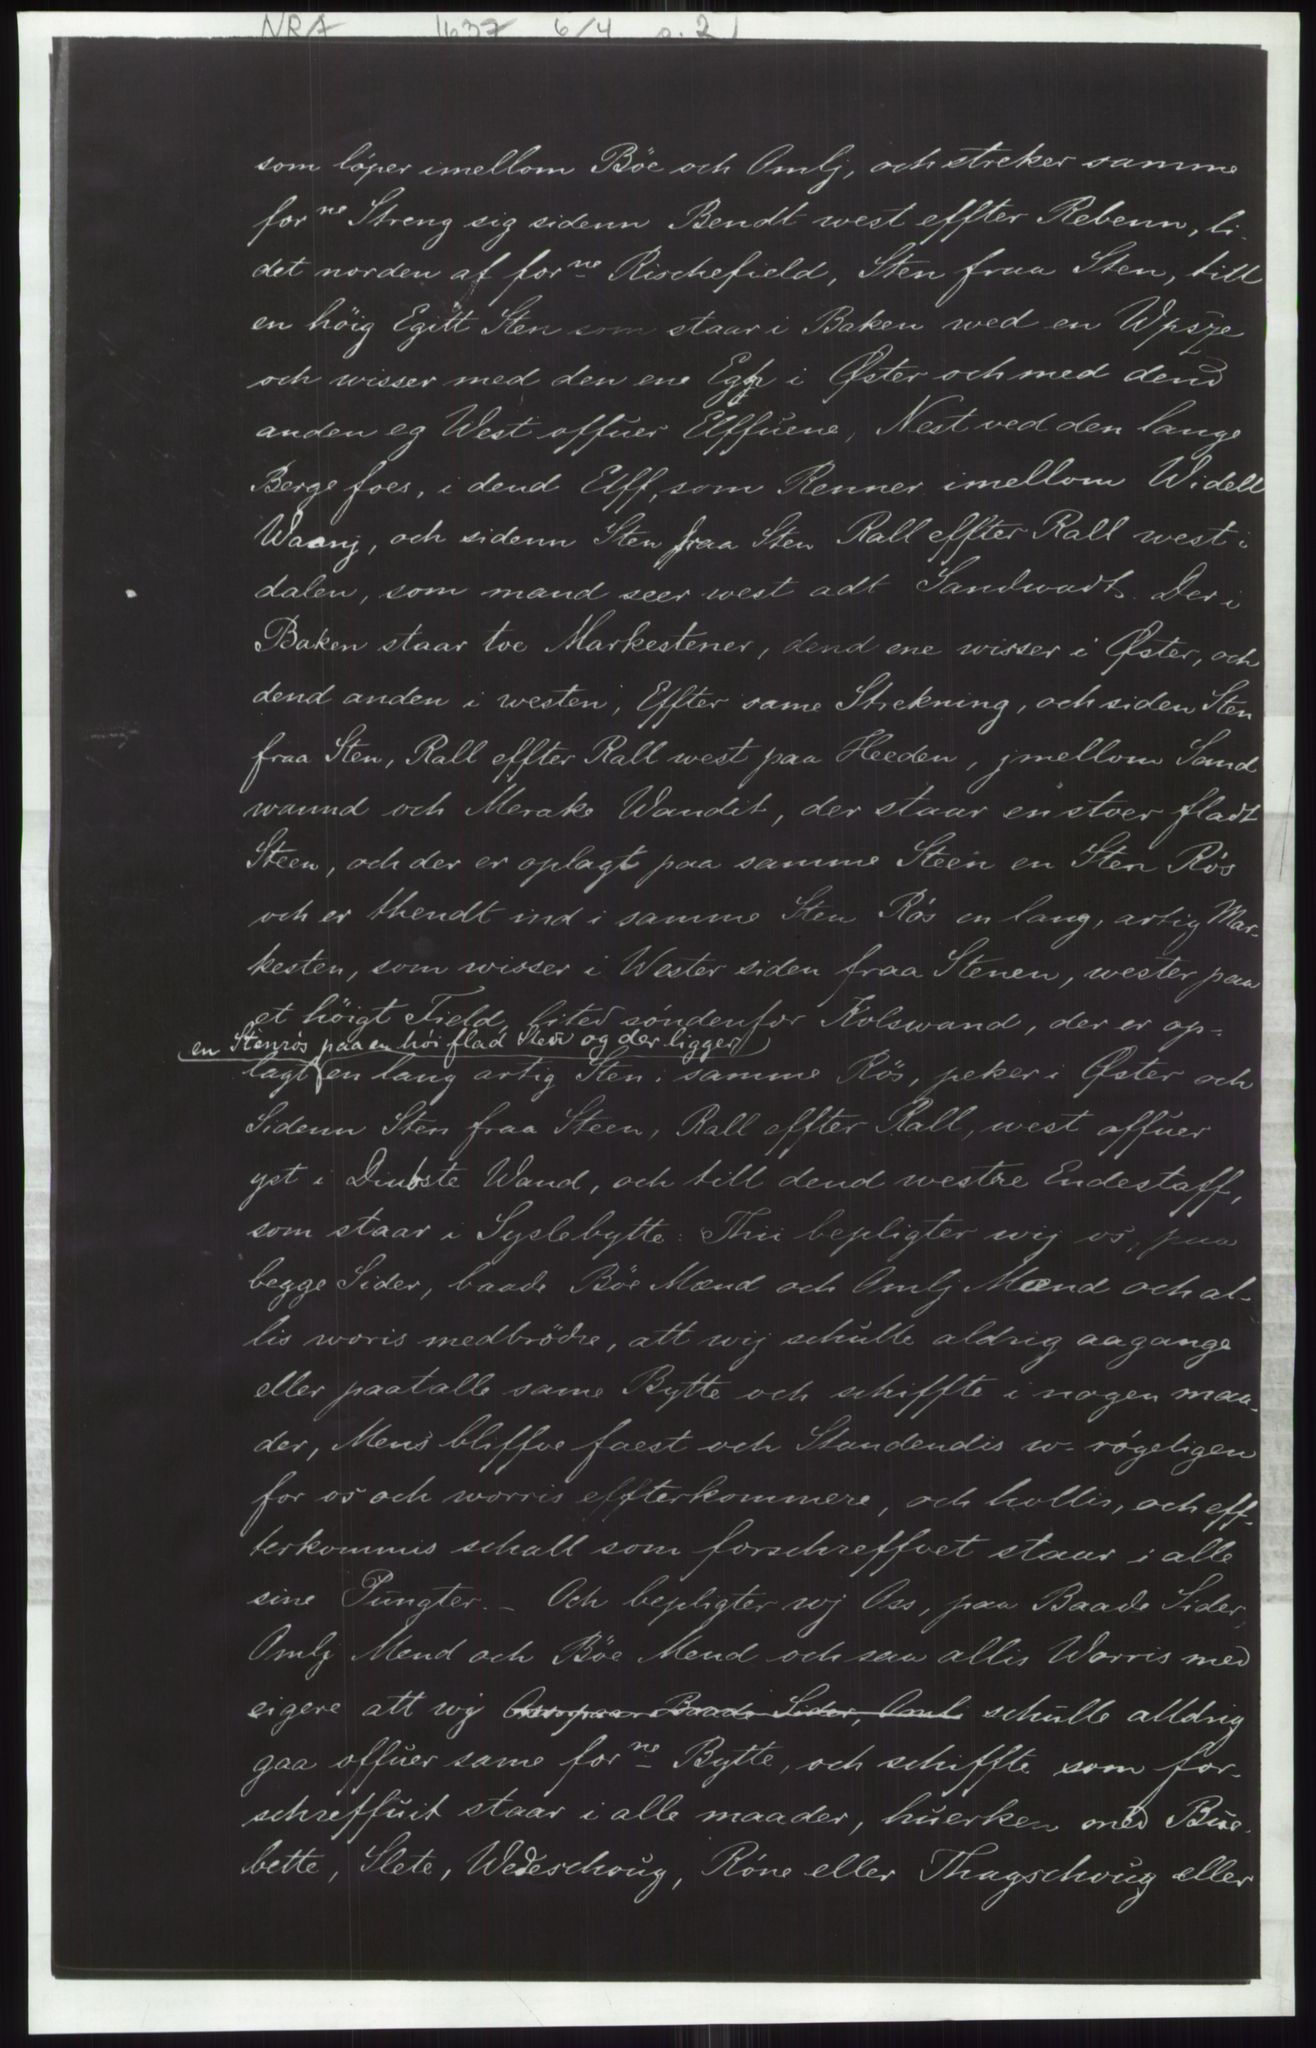 NRA 1637 6/4 s. 2
som löper imellom Böe och Omlj, och streker samme
for ne Streng sig sidenn Bendt west effter Rebenn, li-
det norden af for ne Rischefield, Sten fraa Sten, till
en höig Egitt Sten som staar i Baken wed en
och wisser med den ene Egg i Øster och med dend
anden eg West offuer Elffuene, Nest ved den lange
Berge foes, i dend Elff, som Renner imellom Widell
Waanj, och sidenn Sten fraa Sten Rall effter Rall west i
dalen, som mand seer west adt Sandwadt. Der i
Baken staar toe Markestener, dend ene wisser i Øster, och
dend anden i westen, Effter same Strekning, och siden Sten
fraa Sten, Rall effter Rall west paa Heeden, jmellom Sand
waund och Merake Wandit, der staar en stoer fladt
Steen, och der er oplagt paa samme Steen en Sten Rös
och er thendt ind i samme Sten Rös en lang, artig Mar-
kesten, som wisser i Wester siden fraa Stenen, wester paa
et höigt Field lited söndenfor Kolswand, der er op-
en Stenrös paa en höi flad Sten og der ligger
lagt en lang artig Sten i samme Rös, peker i Øster och
Sidenn Sten fraa Steen, Rall effter Rall, west offuer
yst i Wand, och till dend westre Endestaff,
som staar i Syslebytte: Thii bepligter wij os, paa
begge Sider, baade Böe Mænd och Omlj Mænd och al-
lis woris medbrödre, att wij schulle aldrig aagange
eller paatalle same Bytte och schiffte i nogen maa-
der, Mens bliffve faest och Standendis w-rögeligen
for os och worris effterkommere, och hollis, och eff-
terkommis schall som forschreffvet staar i alle
sine Pungter. – Och bepligter wj Oss, paa Baade Sider,
Omlj Mend och Böe Mend och saa allis Worris med
eigere att wij Oss paa Baade Sider, Oml schulle alldrig
gaa offuer same for ne Bytte, och schiffte som for-
schreffuit staar i alle maader, huerken med Bue-
bette, Slete, Wedeschoug, Röne eller Thagschoug eller